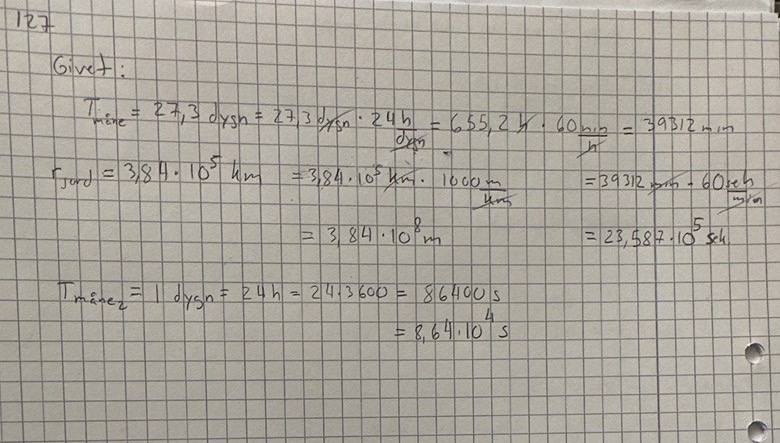 127
Givet:
T_måne = 27,3 dygn = 27,3 dygn · 24 h/dygn = 655,2 h · 60 min/h = 39312 min
r_jord = 3,84 · 10^5 km = 3,84 · 10^5 km · 1000 m/km = 39312 min · 60 sek/min
= 3,84 · 10^8 m = 23,587 · 10^5 sek
T_måne2 = 1 dygn = 24h = 24·3600 = 86400 s
= 8,64 · 10^4 s